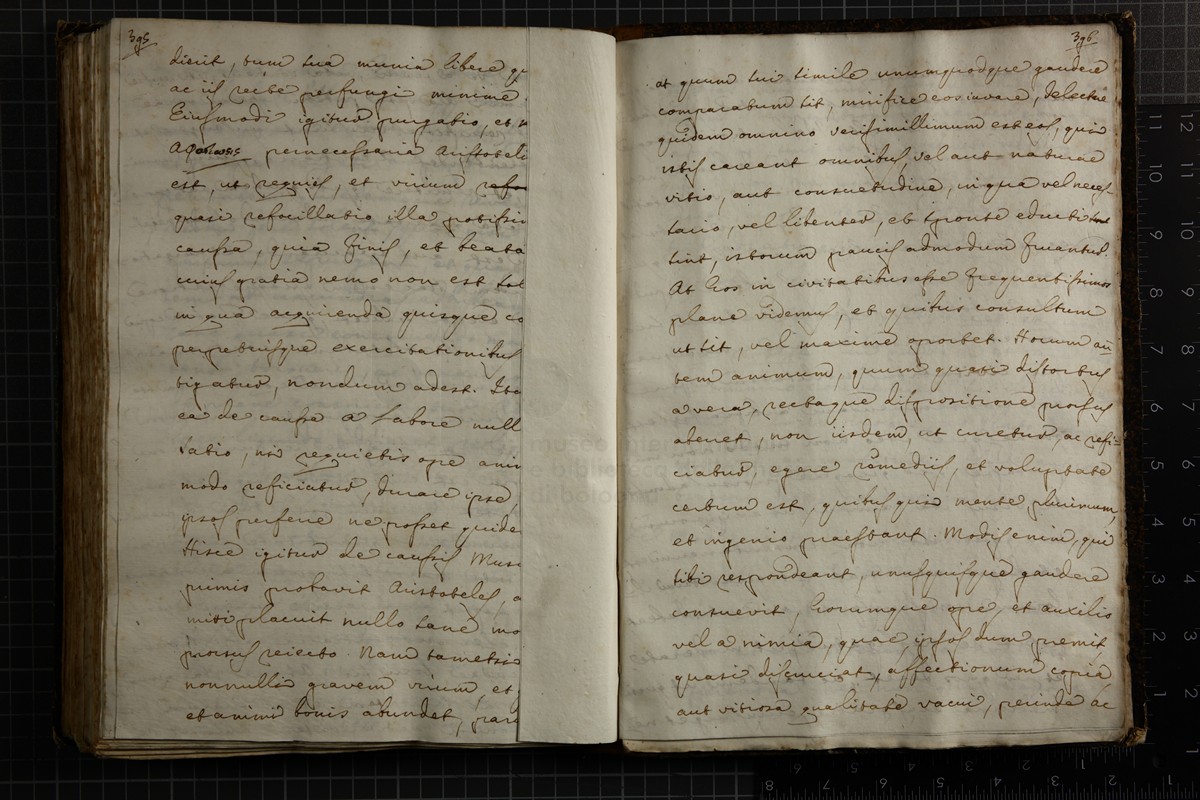 395
dicit, tum sua munia libere
ac iis recte perfungi minime
Eiusmodi igitur purgatio, et
pernecessaria Aristoteli
est, ut requies, et virium
quasi refocillatio illa potissi
caussa, quia finis, et beata
cuius gratia nemo non est
in qua acquirenda quisque
perpetuisque exercitationibus
tigatur, nondum adest. Ita
ea de caussa a labore null
latio, nisi requietis ope ani
modo reficiatur, durare ipse,
ipsos perferre ne posset quide
Hisce igitur de caussis Mus
primis probavit Aristoteles, a
misi placuit nullo sane mo
prorsus reiecto. Nam tametsi
nonnulli gravem virum, et
et animi bonis abundet,
396
at quum sui simile unumquodque gaudere
comparatum sit, mirifice eos iuvare, delectare
quidem omnino verisimillimum est eos, qui
istis careant omnibus, vel aut naturae
vitio, aut consuetudine, in qua vel neces-
sario, vel libenter, et sponte educti
sint, istorum paucis admodum fruantur.
At hos in civitatibus esse frequentissimos
plane videmus, et quibus consultum
ut sit, vel maxime oportet. Horum au
tem animum, quum quasi distortus
a vera, rectaque dispositione prorsus
aberret, non iisdem, ut curetur, ac refi-
ciatur, egere remediis, et voluptate
certum est, quibus qui mente plurimum,
et ingenio praestant. Modis enim, qui
sibi respondeant, unusquisque gaudere
consuevit, horumque ope, et auxilio
vel a nimia, quae ipsos dum premit
quasi discruciat, affectionum copia
aut vitiosa qualitate vacui, perinde ac
museo inter
e bibliotec
di bologna